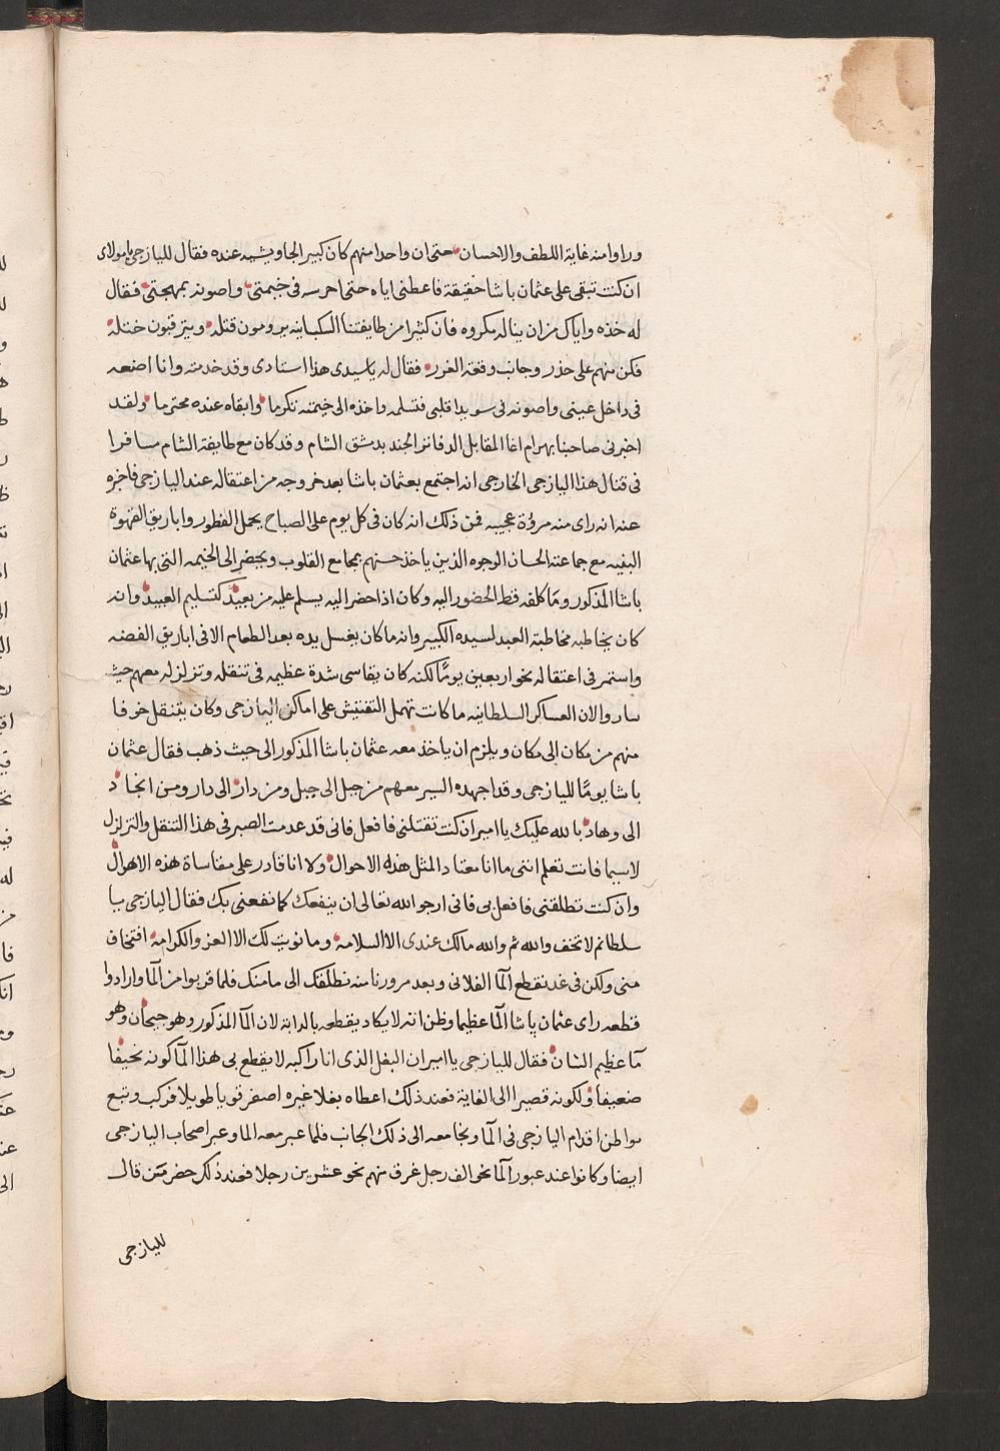 وراوا منه غاية اللطف والاحسان حتى ان واحدا منهم كان كبير الجاويشيه عنده فقال لليازجي يا مولاى
ان كنت تبقى على عثمان باشا حقيقة فاعطنى اياه حتى احرسه فى خيمتى واصونه بمهجتى فقال
له خذه واياك من ان يناله مكروه فان كثيرا من طايفتنا السكبانيه يرومون قتله ويترقبون ختله
فكن منهم على حذر وجانب وقعة الغرر فقال له يا سيدى هذا استادى وقد خدمته وانا اضعه
فى داخل عينى واصونه فى سويدا قلبى فتسلمه واخذه الى خيمته تكرما وابقاه عنده محترما ولقد
اخبرنى صاحبنا بهرام اغا المقابل لدفاتر الجند بدمشق الشام وقد كان مع طايفة الشام مسافرا
فى قتال هذا اليازجى الخارجى انه اجتمع بعثمان باشا بعد خروجه من اعتقاله عند اليازجى فاخبره
عنه انه راى منه مروءة عجيبه فمن ذلك انه كان فى كل يوم على الصباح يحمل الفطور واباريق القهوة
البنيه مع جماعته الحسان الوجوه الذين ياخذ حسنهم بمجامع القلوب ويحضر الى الخيمه التى بها عثمان
باشا المذكور وما كلفه قط الحضور اليه وكان اذا حضر اليه يسلم عليه من بعيد كتسليم العبيد وانه
كان يخاطبه مخاطبة العبد لسيده الكبير وانه ما كان يغسل يده بعد الطعام الا فى اباريق الفضه
واستمر فى اعتقاله نحو اربعين يوما لكنه كان يقاسى شدة عظيمه فى تنقله وتزلزله معهم حيث
ساروا لان العساكر السلطانيه ما كانت تهمل التفتيش على اماكن اليازجى وكان يتنقل خوفا
منهم من مكان الى مكان ويلزم ان ياخذ معه عثمان باشا المذكور الى حيث ذهب فقال عثمان
باشا يوما لليازجى وقد اجهده السير معهم من جبل الى جبل ومن دار الى دار ومن انجاد
الى وهاد بالله عليك يا امير ان كنت تقتلنى فافعل فانى قد عدمت الصبر فى هذا التنقل والتزلزل
لا سيما فانت تعلم اننى ما انا معتاد لمثل هذه الاحوال ولا انا قادر على مقاساة هذه الاهوال
وان كنت تطلقنى فافعل بى فانى ارجو الله تعالى ان ينفعك كما نفعنى بك فقال اليازجى يا
سلطانم لا تخف والله ثم والله مالك عندى الا السلامة وما نويت لك الا العز والكرامة افتخاف
منى ولكن فى غد نقطع الما الفلانى وبعد مرورنا منه نطلقك الى مامنك فلما قربوا من الما وارادوا
قطعه راى عثمان باشا الما عظيما وظن انه لا يكاد يقطعه بالدابة لان الما المذكور وهو جيحان وهو
ما عظيم الشان فقال لليازجى يا امير ان البغل الذى انا راكبه لا يقطع بى هذا الما كونه نحيفا
ضعيفا ولكونه قصيرا الى الغاية فعند ذلك اعطاه بغلا غيره اصفر قويا طويلا فركب وتبع
مواطن اقدام اليازجى فى الما ونجا معه الى ذلك الجانب فلما عبر معه الما وعبر اصحاب اليازجى
ايضا وكانوا عند عبور الما نحو الف رجل غرق منهم نحو عشرين رجلا فعند ذلك حضر من قال
لليازجى